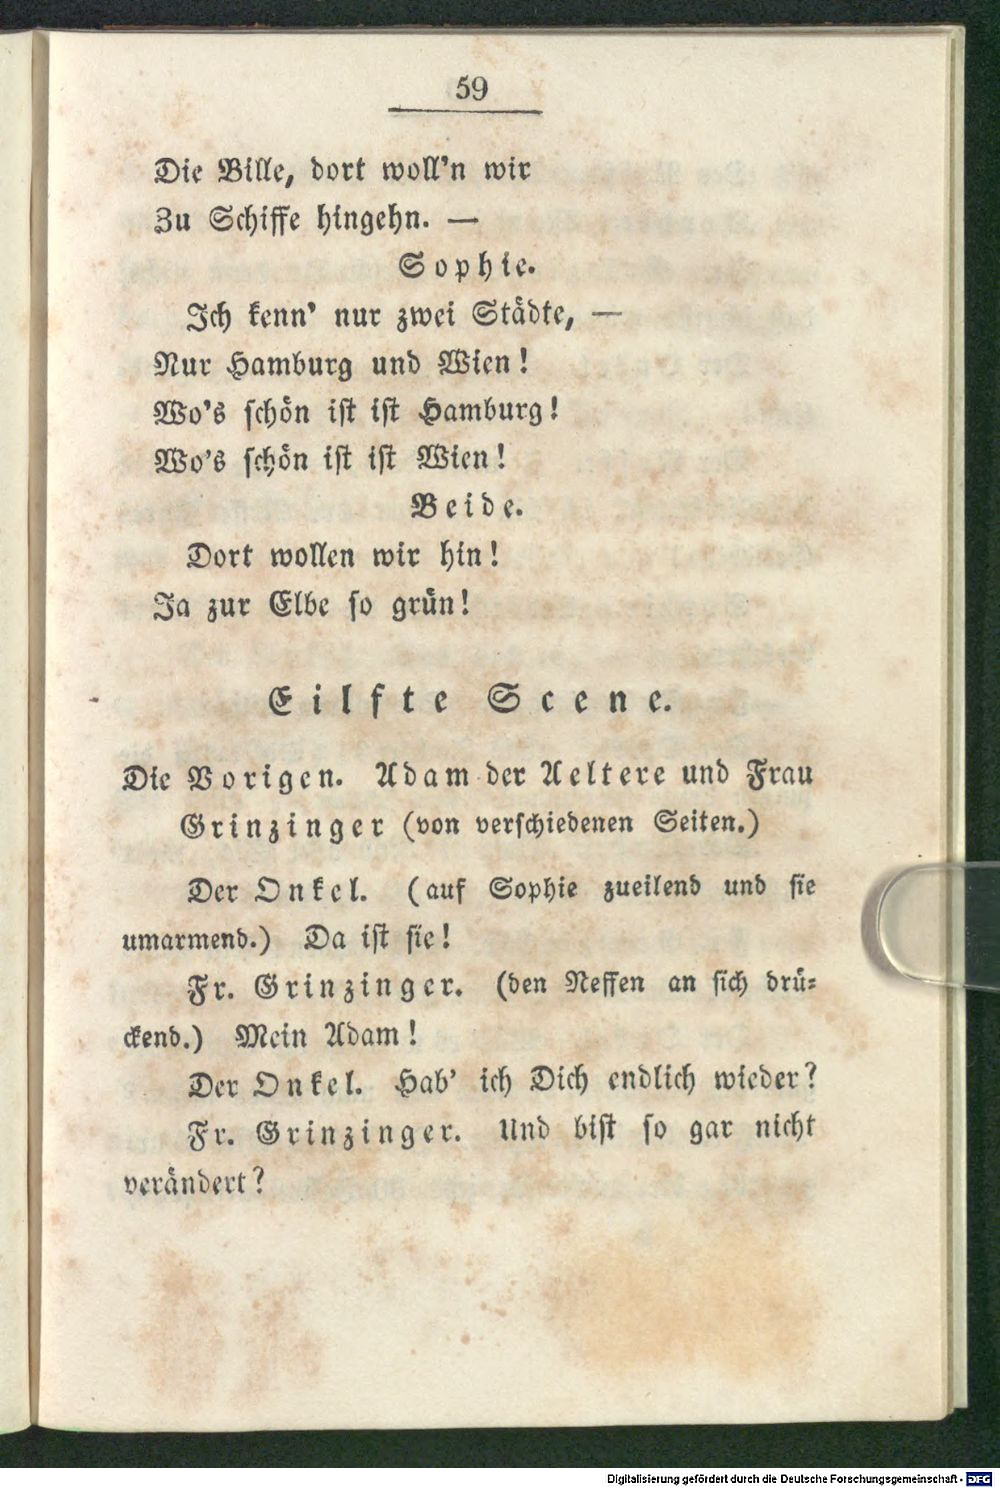 59
Die Bille, dort woll'n wir
Zu Schiffe hingehn. —
Sophie.
Ich kenn' nur zwei Städte, —
Nur Hamburg und Wien!
Wo's schön ist ist Hamburg!
Wo's schön ist ist Wien!
Beide.
Dort wollen wir hin!
Ja zur Elbe so grün!
Eilfte Scene.
Die Vorigen. Adam der Aeltere und Frau
Grinzinger (von verschiedenen Seiten.)
Der Onkel. (auf Sophie zueilend und sie
umarmend.) Da ist sie!
Fr. Grinzinger. (den Neffen an sich drü-
ckend.) Mein Adam!
Der Onkel. Hab' ich Dich endlich wieder?
Fr. Grinzinger. Und bist so gar nicht
verändert?
Digitalisierung gefördert durch die Deutsche Forschungsgemeinschaft - DFG